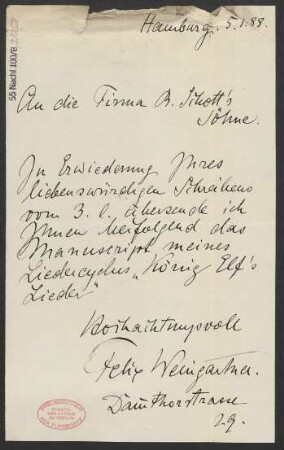 Hamburg. 5.1.88.
An die Firma B. Schott's
Söhne.
In Erwiederung Ihres
liebenswürdigen Schreibens
vom 3. l. übersende ich
Ihnen beifolgend das
Manuscript meines
Liedercyclus „König Elf's
Lieder"
Hochachtungsvoll
Felix Weingartner.
Dammthorstrasse
29.
55 Nachl 100/B